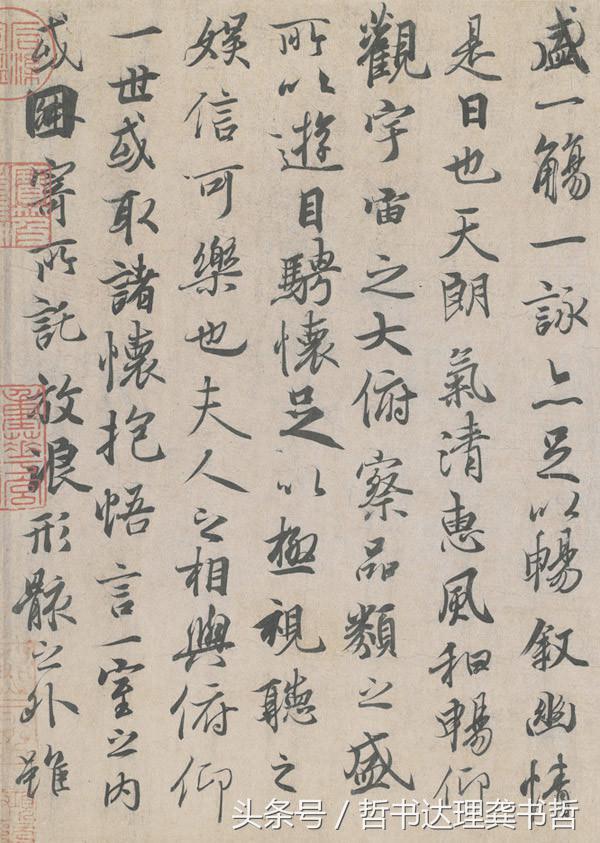 盛一觴一詠亦足以暢敘幽情
是日也天朗氣清惠風和暢仰
觀宇宙之大俯察品類之盛
所以遊目騁懷足以極視聽之
娛信可樂也夫人之相與俯仰
一世或取諸懷抱悟言一室之內
或因寄所託放浪形骸之外雖
头条号 / 哲书达理龚书哲